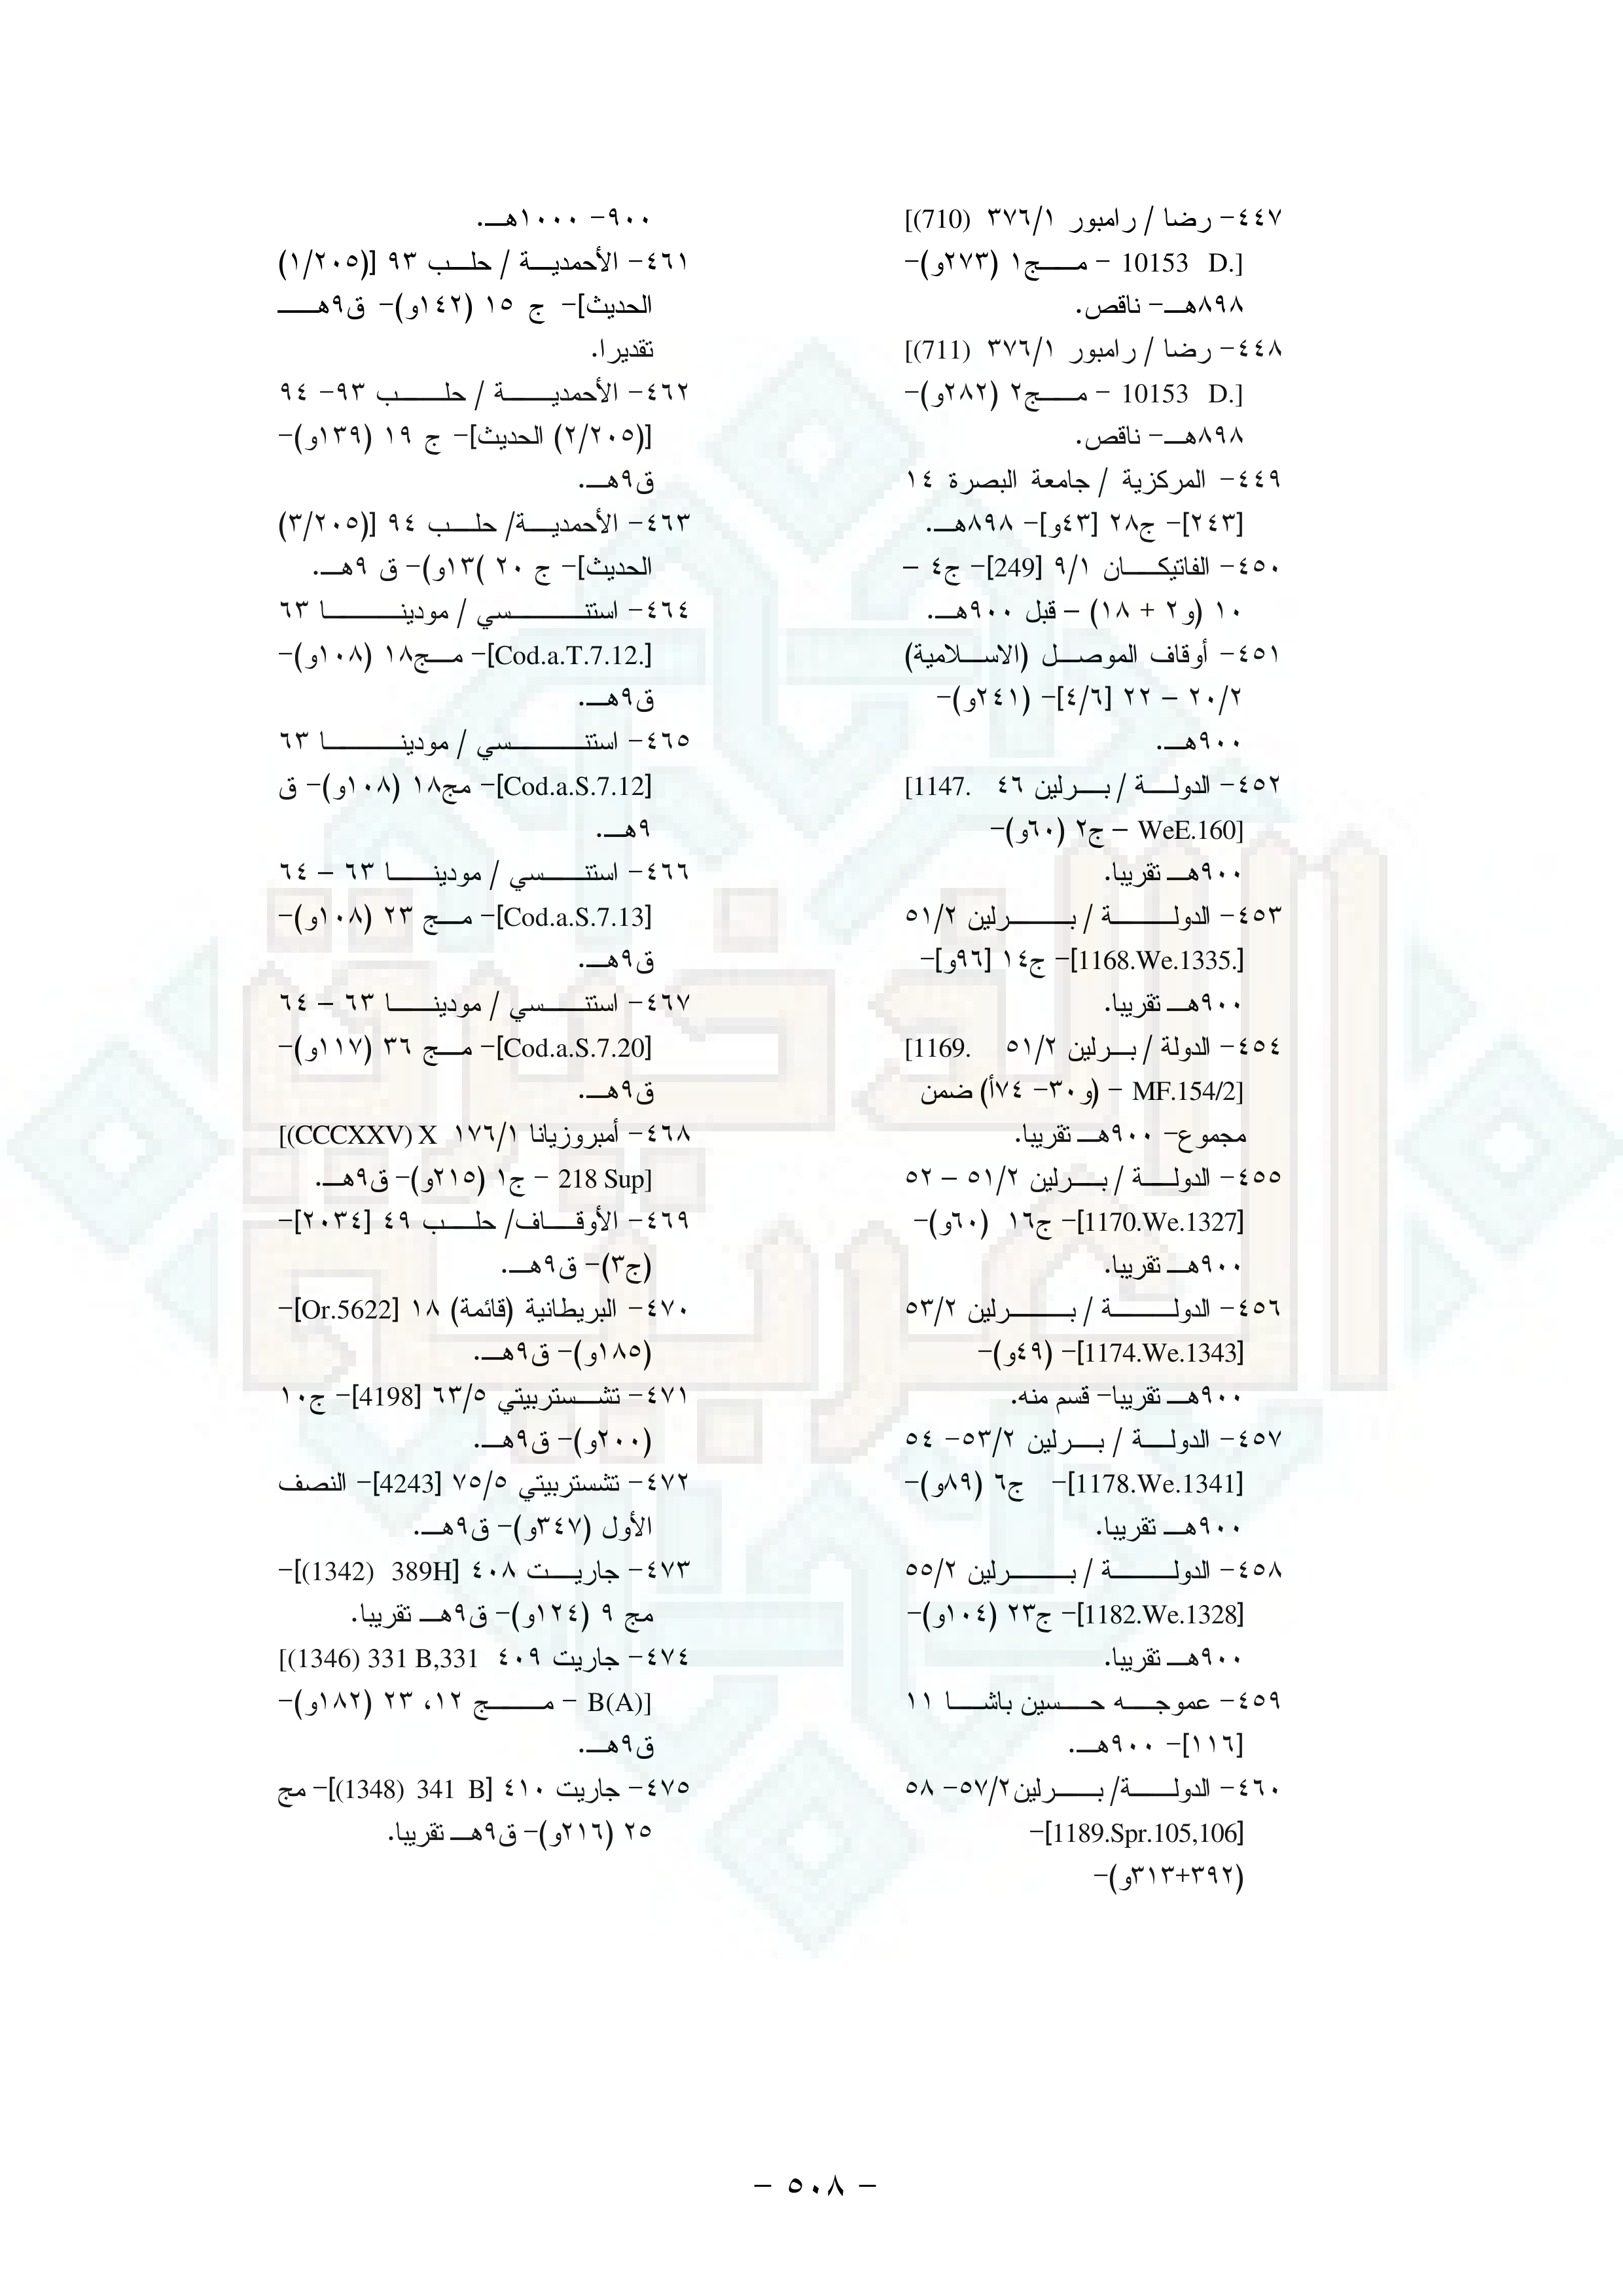 ٤٤٧- رضا / رامبور ٣٧٦/١ (710)]
[.10153 D - مج١ (٢٧٣و)-
٨٩٨هـ- ناقص.
٤٤٨- رضا / رامبور ٣٧٦/١ (711)]
[.10153 D - مج٢ (٢٨٢و)-
٨٩٨هـ- ناقص.
٤٤٩- المركزية / جامعة البصرة ١٤
[٢٤٣]- ج٢٨ [٤٣و]- ٨٩٨هـ.
٤٥٠- الفاتيكان ٩/١ [249]- ج٤ –
١٠ (و٢ + ١٨) – قبل ٩٠٠هـ.
٤٥١- أوقاف الموصل (الاسلامية)
٢٠/٢ – ٢٢ [٤/٦]- (٢٤١و)-
٩٠٠هـ.
٤٥٢- الدولة / برلين ٤٦ .1147]
[WeE.160 – ج٢ (٦٠و)-
٩٠٠هـ تقريبا.
٤٥٣- الدولة / برلين ٥١/٢
[.1168.We.1335]- ج١٤ [٩٦و]-
٩٠٠هـ تقريبا.
٤٥٤- الدولة / برلين ٥١/٢ .1169]
[MF.154/2 - (و٣٠- ٧٤أ) ضمن
مجموع- ٩٠٠هـ تقريبا.
٤٥٥- الدولة / برلين ٥١/٢ – ٥٢
[1170.We.1327]- ج١٦ (٦٠و)-
٩٠٠هـ تقريبا.
٤٥٦- الدولة / برلين ٥٣/٢
[1174.We.1343]- (٤٩و)-
٩٠٠هـ تقريبا- قسم منه.
٤٥٧- الدولة / برلين ٥٣/٢- ٥٤
[1178.We.1341]- ج٦ (٨٩و)-
٩٠٠هـ تقريبا.
٤٥٨- الدولة / برلين ٥٥/٢
[1182.We.1328]- ج٢٣ (١٠٤و)-
٩٠٠هـ تقريبا.
٤٥٩- عموجه حسين باشا ١١
[١١٦]- ٩٠٠هـ.
٤٦٠- الدولة/ برلين٥٧/٢- ٥٨
[1189.Spr.105,106]-
(٣٩٢+٣١٣و)-
٩٠٠- ١٠٠٠هـ.
٤٦١- الأحمدية / حلب ٩٣ [(١/٢٠٥)
الحديث]- ج ١٥ (١٤٢و)- ق٩هـ
تقديرا.
٤٦٢- الأحمدية / حلب ٩٣- ٩٤
[(٢/٢٠٥) الحديث]- ج ١٩ (١٣٩و)-
ق٩هـ.
٤٦٣- الأحمدية/ حلب ٩٤ [(٣/٢٠٥)
الحديث]- ج ٢٠ )١٣و)- ق ٩هـ.
٤٦٤- استتسي / مودينا ٦٣
[.Cod.a.T.7.12]- مج١٨ (١٠٨و)-
ق٩هـ.
٤٦٥- استتسي / مودينا ٦٣
[Cod.a.S.7.12]- مج١٨ (١٠٨و)- ق
٩هـ.
٤٦٦- استتسي / مودينا ٦٣ – ٦٤
[Cod.a.S.7.13]- مج ٢٣ (١٠٨و)-
ق٩هـ.
٤٦٧- استتسي / مودينا ٦٣ – ٦٤
[Cod.a.S.7.20]- مج ٣٦ (١١٧و)-
ق٩هـ.
٤٦٨- أمبروزيانا ١٧٦/١ CCCXXV) X)]
[218 Sup - ج١ (٢١٥و)- ق٩هـ.
٤٦٩- الأوقاف/ حلب ٤٩ [٢٠٣٤]-
(ج٣)- ق٩هـ.
٤٧٠- البريطانية (قائمة) ١٨ [Or.5622]-
(١٨٥و)- ق٩هـ.
٤٧١- تشستربيتي ٦٣/٥ [4198]- ج١٠
(٢٠٠و)- ق٩هـ.
٤٧٢- تشستربيتي ٧٥/٥ [4243]- النصف
الأول (٣٤٧و)- ق٩هـ.
٤٧٣- جاريت ٤٠٨ [(1342) 389H]-
مج ٩ (١٢٤و)- ق٩هـ تقريبا.
٤٧٤- جاريت ٤٠٩ 331 B,331 (1346)]
[B(A) - مج ١٢، ٢٣ (١٨٢و)-
ق٩هـ.
٤٧٥- جاريت ٤١٠ [(1348) 341 B]- مج
٢٥ (٢١٦و)- ق٩هـ تقريبا.
- ٥٠٨ -